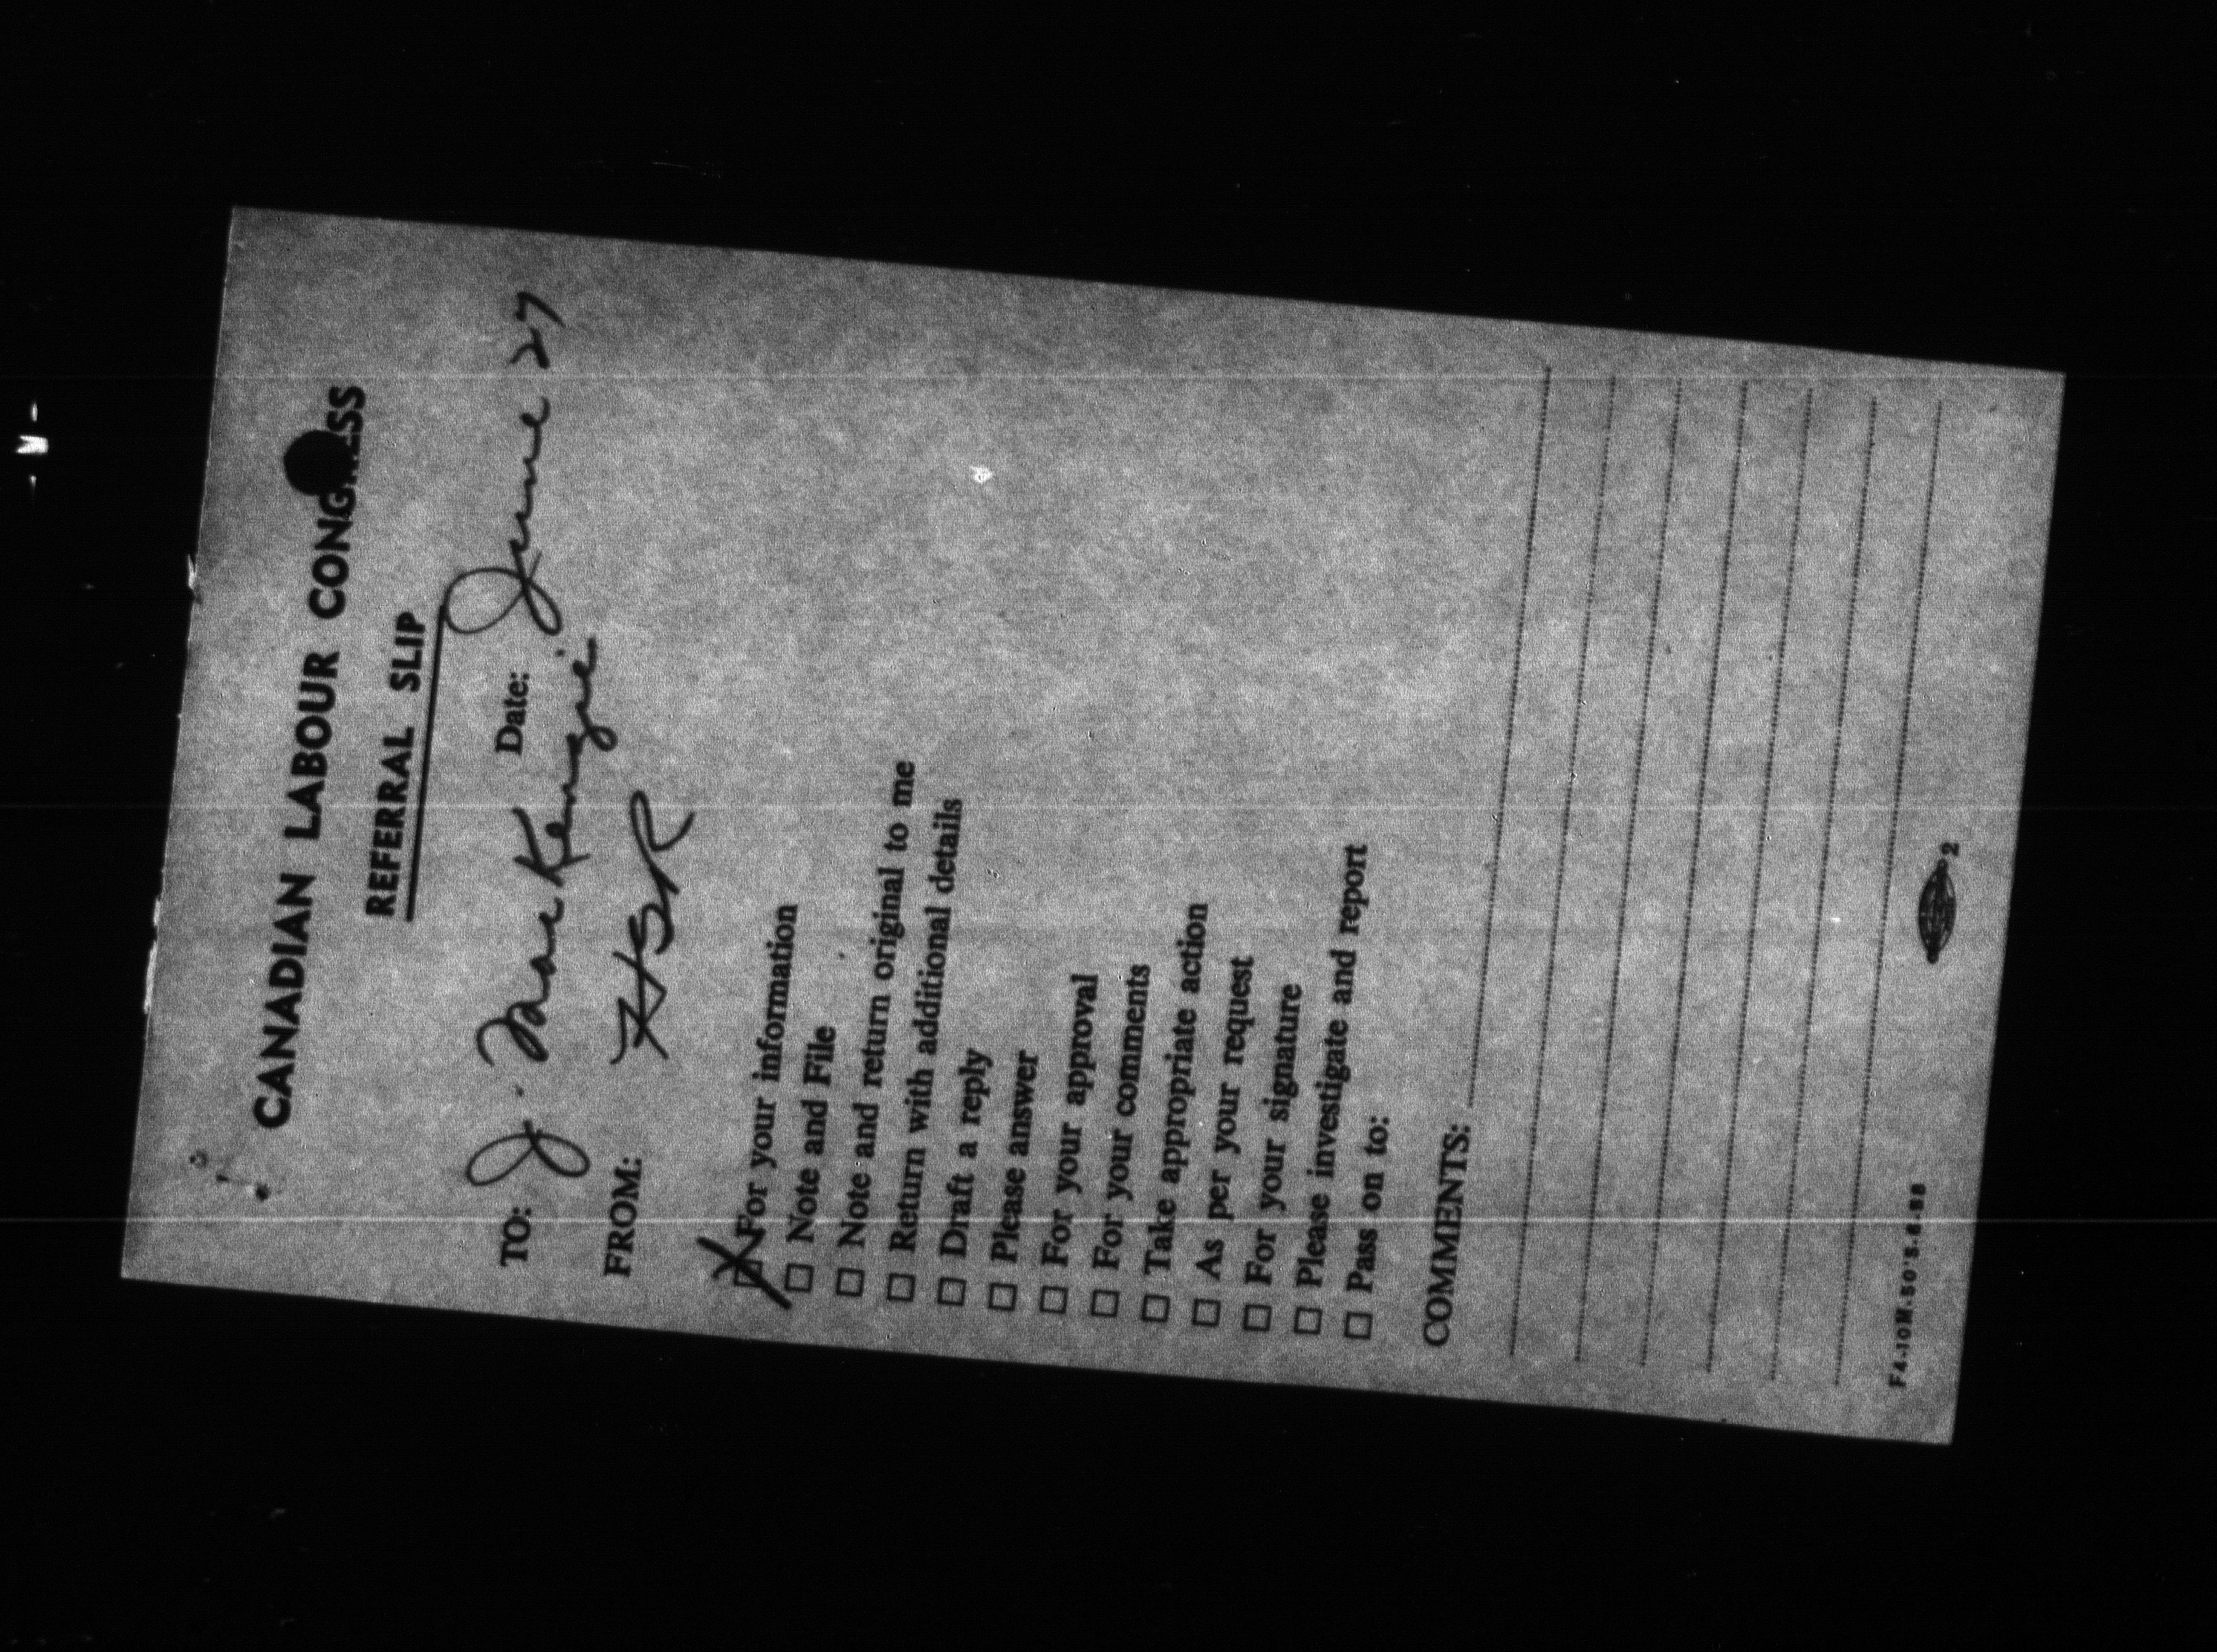 CANADIAN LABOUR CONGRESS
REFERRAL SLIP
Date: June 27
TO: J. MacKenzie
FROM: HSR
☒ For your information
☐ Note and File
☐ Note and return original to me
☐ Return with additional details
☐ Draft a reply
☐ Please answer
☐ For your approval
☐ For your comments
☐ Take appropriate action
☐ As per your request
☐ For your signature
☐ Please investigate and report
☐ Pass on to:
COMMENTS:
2